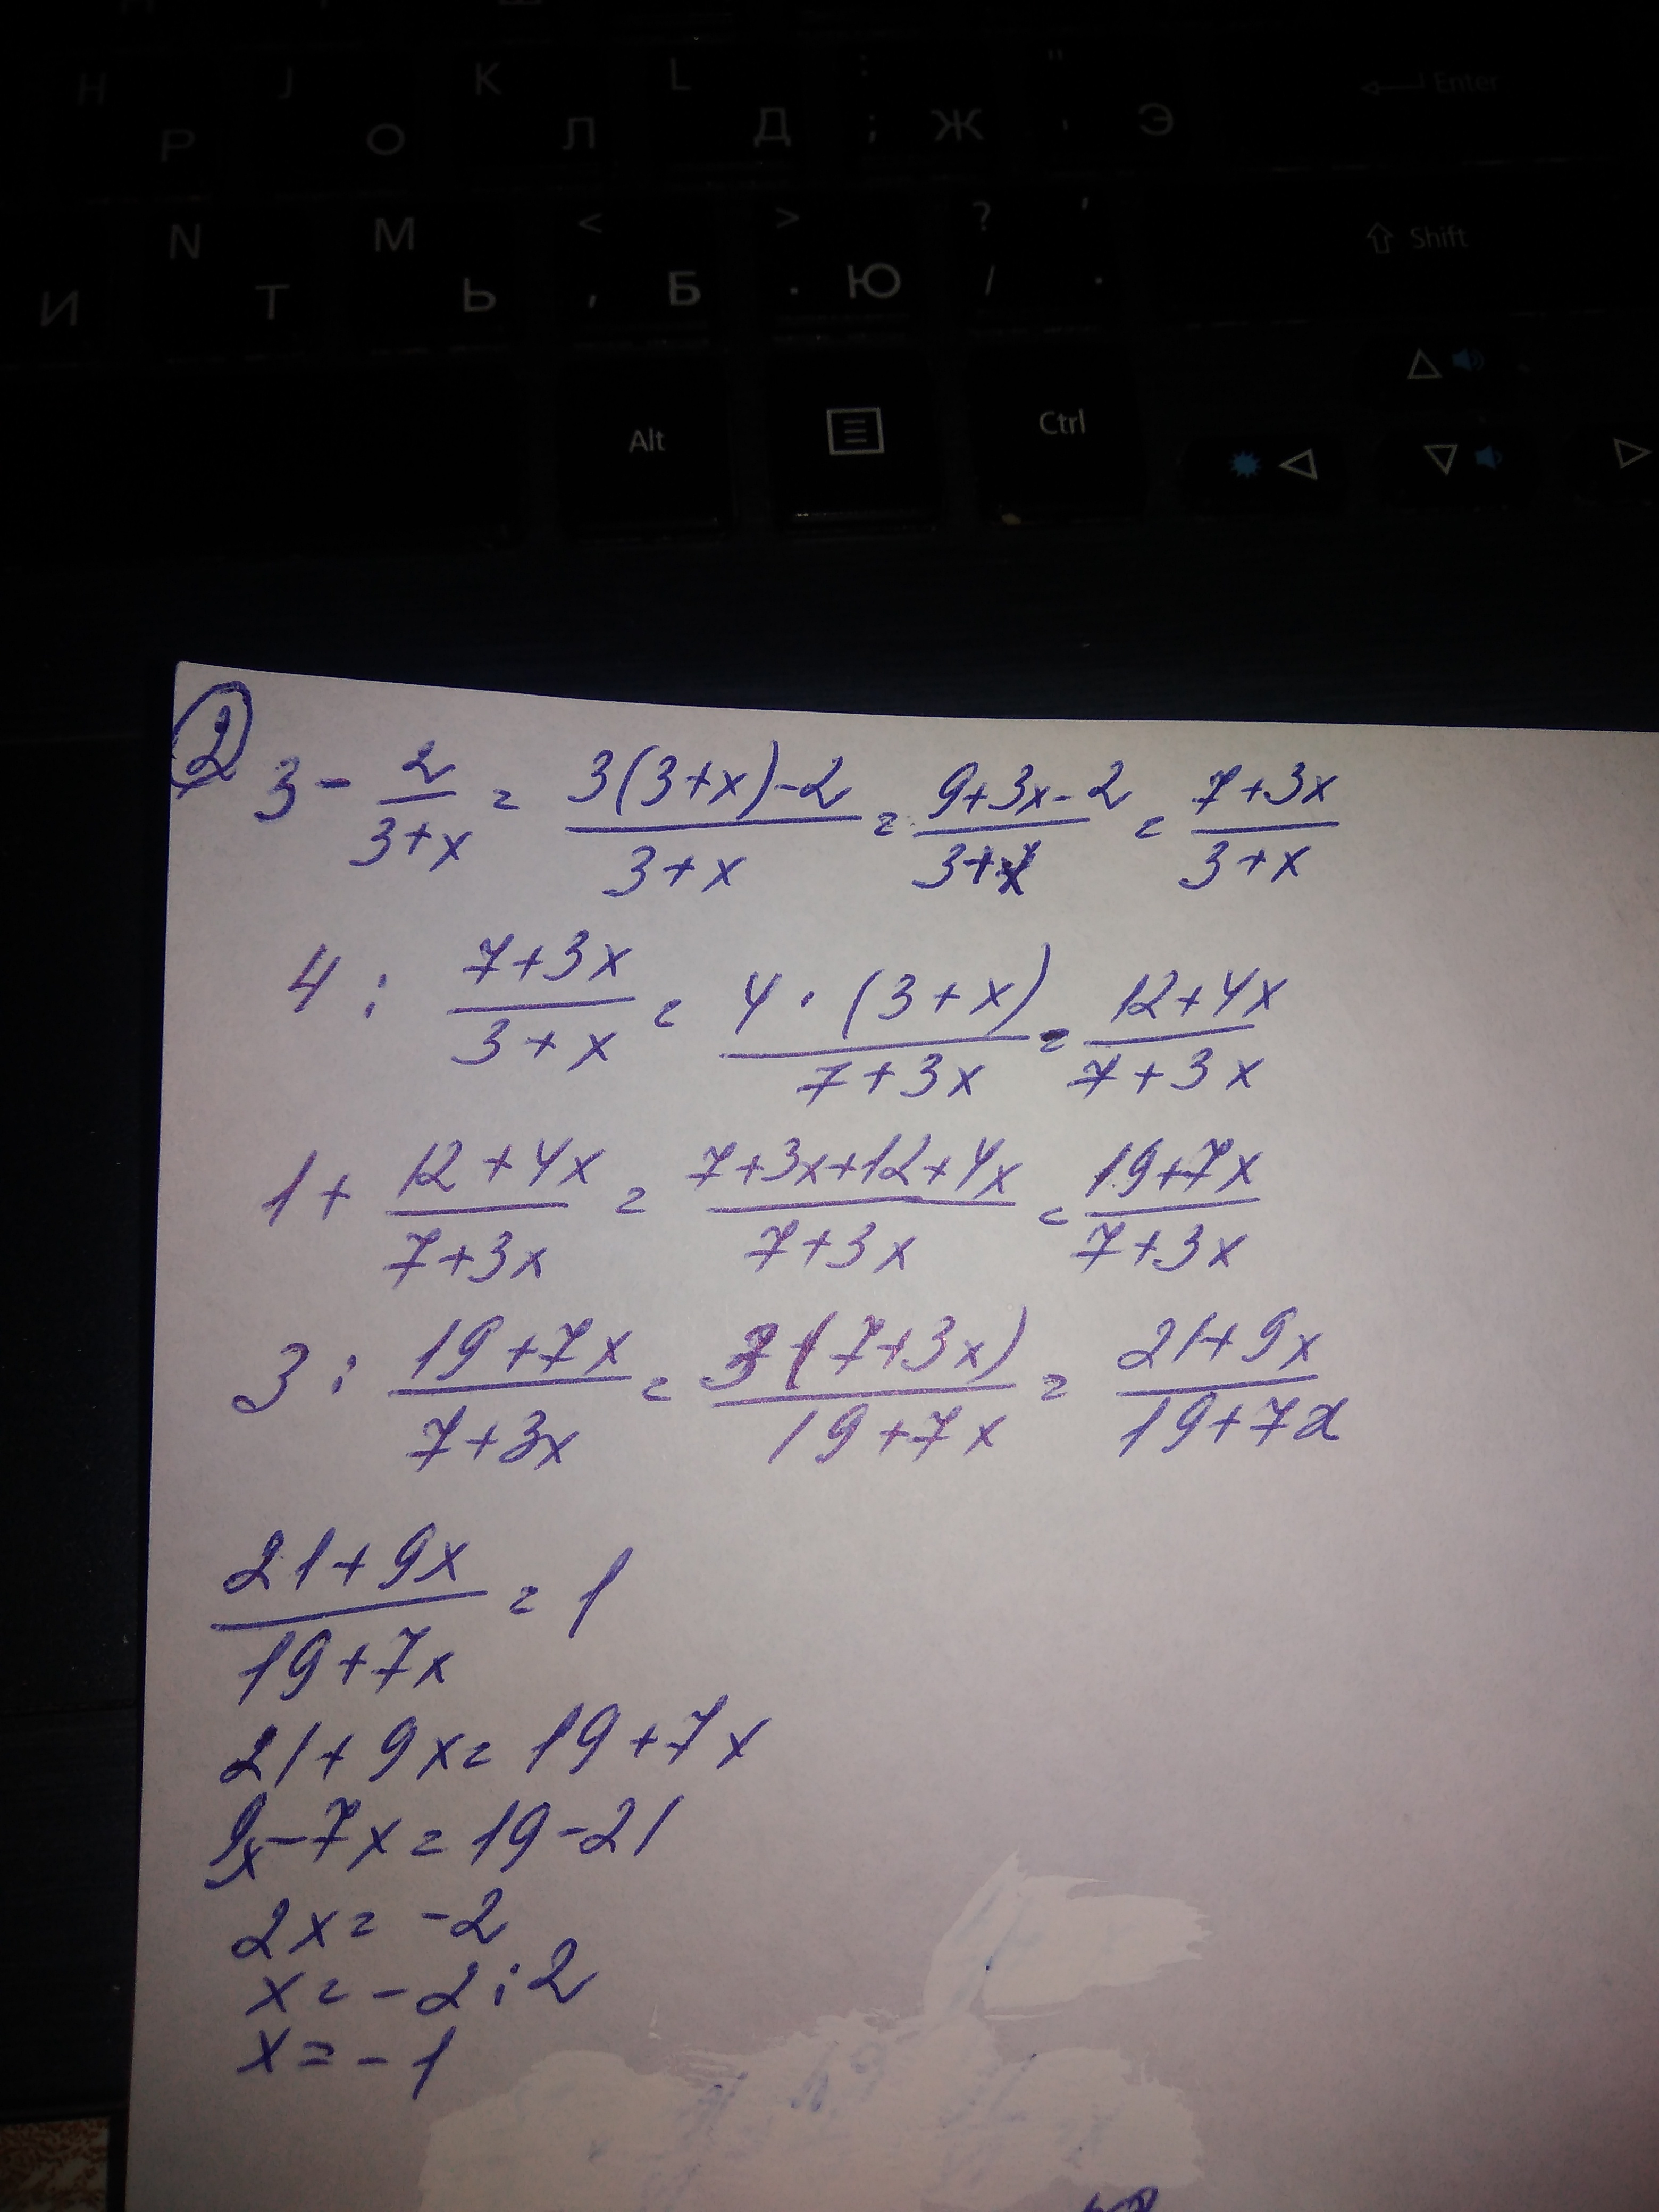 H J K L : " Enter
Р О Л Д ; Ж ' Э
N M < > ? ' Shift
И Т Ь , Б . Ю / .
Alt Ctrl
2
3 - 2/(3+x) = (3(3+x)-2)/(3+x) = (9+3x-2)/(3+x) = (7+3x)/(3+x)
4 : (7+3x)/(3+x) = (4·(3+x))/(7+3x) = (12+4x)/(7+3x)
1 + (12+4x)/(7+3x) = (7+3x+12+4x)/(7+3x) = (19+7x)/(7+3x)
3 : (19+7x)/(7+3x) = (3(7+3x))/(19+7x) = (21+9x)/(19+7x)
(21+9x)/(19+7x) = 1
21+9x = 19+7x
9x-7x = 19-21
2x = -2
x = -2 : 2
x = -1